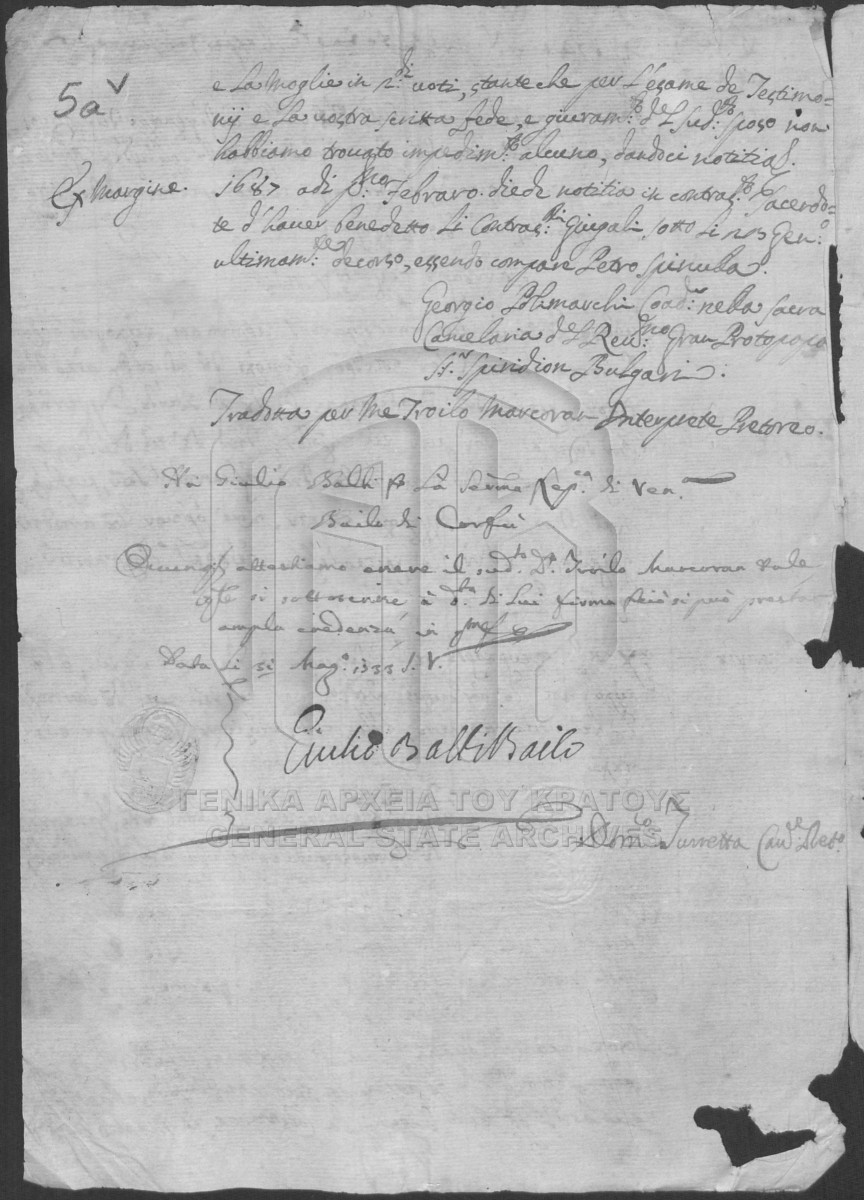 5a v
e La Moglie in 2:di voti, stante che per L'esame de Testimo=
nij e La vostra scritta fede, e giuram:to del sud:to sposo non
habbiamo trovato impedim:to alcuno, dandoci notitia
Ex Margine.
1687 adi p:mo Febraro. diede notitia in contras:to Sacerdo=
te d'haver benedetto Li Contras:ti Giugali sotto Li 23 Gen:o
ultimam:te decorso, essendo compare Petro Spinula.
Georgio Polimarchi Coad:r nella sacra
Cancelaria del Rev:mo Gran Protopapa
Sr. Spiridion Bulgari.
Tradotta per me Troilo Marcoran Interprete Pretoreo.
Noi Giulio Balbi p La Serma Rep:ca di Ven:a
Bailo di Corfù
attestiamo essere il sud:to Dr. Troilo Marcoran tale
si sottoscrive, à di Lui firma si può prestar
ampla credenza, in
Data Li 31 Mag:o S. V.
Giulio Balbi Bailo
ΓΕΝΙΚΑ ΑΡΧΕΙΑ ΤΟΥ ΚΡΑΤΟΥΣ
GENERAL STATE ARCHIVES
Dom:co Turretta Can:re